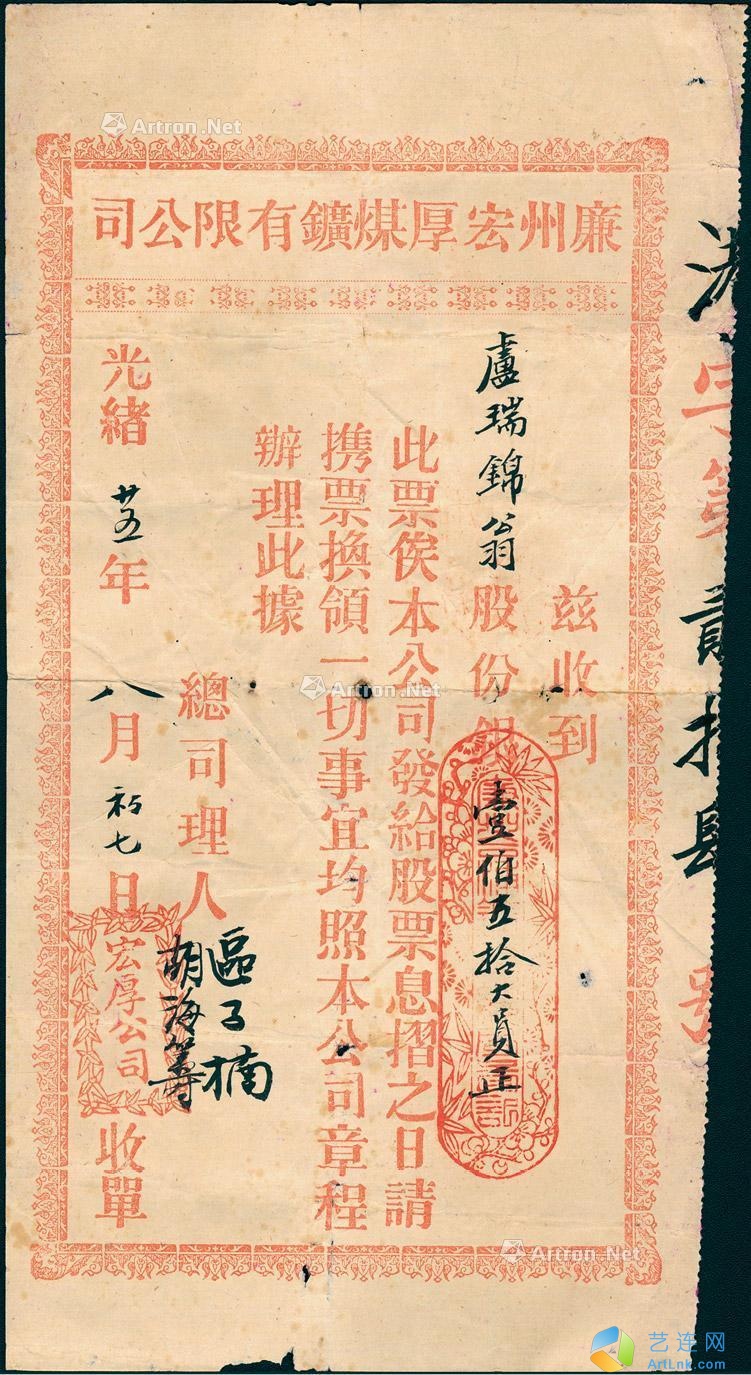 廉州宏厚煤鑛有限公司
字第貳拾號
茲收到
盧瑞錦翁股份銀壹伯五拾大員正
此票俟本公司發給股票息摺之日請
携票換領一切事宜均照本公司章程
辦理此據
總司理人
區子楠
胡海籌
光緒廿五年八月初七日收單
宏厚公司
Artron.Net
Artron.Net
Artron.Net
艺连网
ArtLnk.com